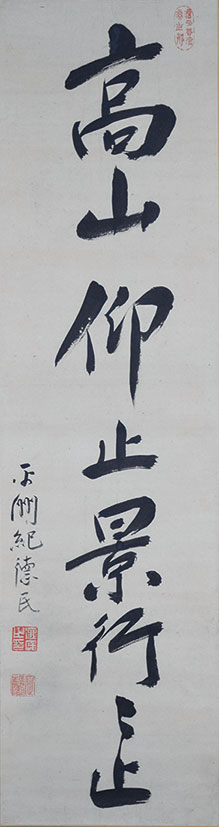 高山仰止景行〻止
平洲紀德民